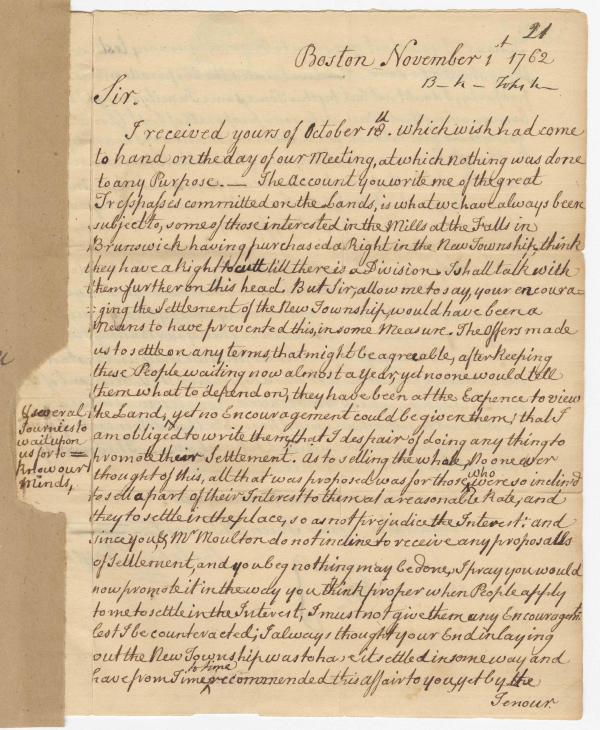 21
Boston November 1st 1762
Sir.
I received yours of October 18th. which wish had come
to hand on the day of our Meeting, at which nothing was done
to any Purpose. — The Account you write me of the great
Tresspasses committed on the Lands, is what we have always been
subject to, some of those interested in the Mills at the Falls in
Brunswick having purchased a Right in the New Township, think
they have a Right to cutt till there is a Division. I shall talk with
them further on this head. But Sir, allow me to say, your encoura=
=ging the Settlement of the New Township, would have been a
Means to have prevented this, in some Measure. The Offers made
us to settle on any terms, that might be agreeable, after keeping
these People waiting now almost a Year, yet no one would tell
them what to depend on, they have been at the Expence to view
the Land, yet no Encouragement could be given them; that I
& several
Journies to
wait upon
us for to =
know our
Minds,
am obliged to write them, that I despair of doing any thing to
promote their Settlement. As to selling the whole, No one ever
thought of this, all that was proposed was for those who were so inclin'd
to sell a part of their Interest to them at a reasonable Rate, and
they to settle in the place, so as not prejudice the Interest: and
since you & Mr Moulton do not incline to receive any proposalls
of Settlement, and you beg nothing may be done, I pray you would
now promote it in the way you think proper when People apply
to me to settle in the Interest, I must not give them any Encouragemt.
lest I be counteracted; I always thought your End in laying
out the New Township was to have it settled in some way and
have from Time to time recommended this affair to you, yet by the
Tenour